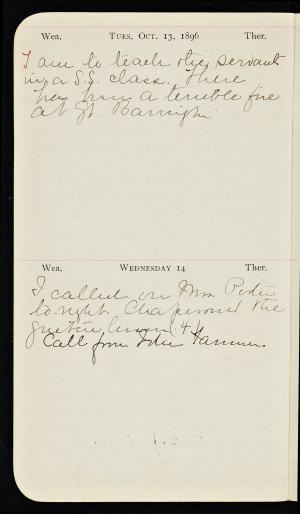 Wea. TUES. OCT. 13, 1896 Ther.
I am to teach the servant
in a S.S. class. There
has been a terrible fire
at Gt. Barrington
Wea. WEDNESDAY 14 Ther.
I called on Mrs.
to-night. Chaperoned the
4
Call from